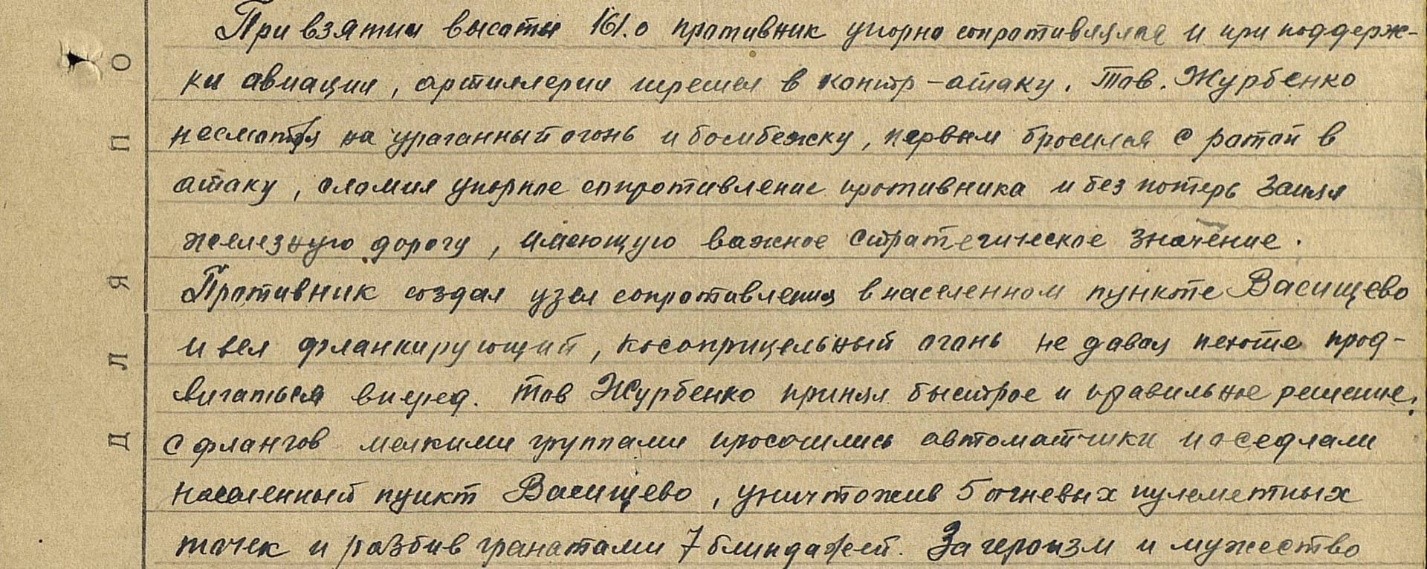 При взятии высоты 161.0 противник упорно сопротивлялся и при поддерж-
ки авиации, артиллерии перешел в контр-атаку. Тов. Журбенко
несмотря на ураганный огонь и бомбежку, первым бросился с ротой в
атаку, сломил упорное сопротивление противника и без потерь занял
железную дорогу, имеющую важное стратегическое значение.
Противник создал узел сопротивления в населенном пункте Васищево
и вел фланкирующий, косоприцельный огонь не давая пехоте прод-
вигаться вперед. Тов Журбенко принял быстрое и правильное решение.
С флангов мелкими группами просочились автоматчики и оседлали
населенный пункт Васищево, уничтожив 5 огневых пулеметных
точек и разбив гранатами 7 блиндажей. За героизм и мужество
ДЛЯ ПО